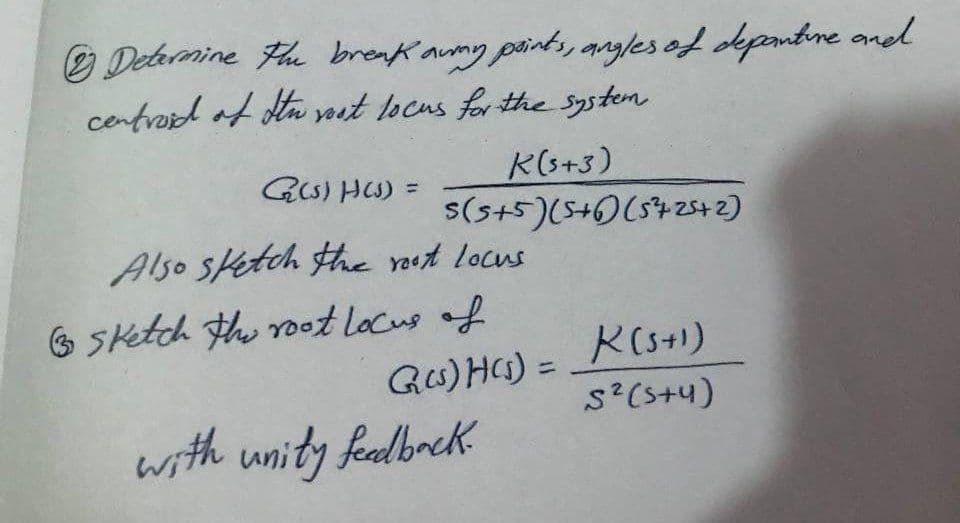 ② Determine the breakaway points, angles of departure and
centroid of the root locus for the system
G(s) H(s) = K(s+3) / s(s+5)(s+6)(s²+2s+2)
Also sketch the root locus
③ sketch the root locus of
G(s) H(s) = K(s+1) / s²(s+4)
with unity feedback.